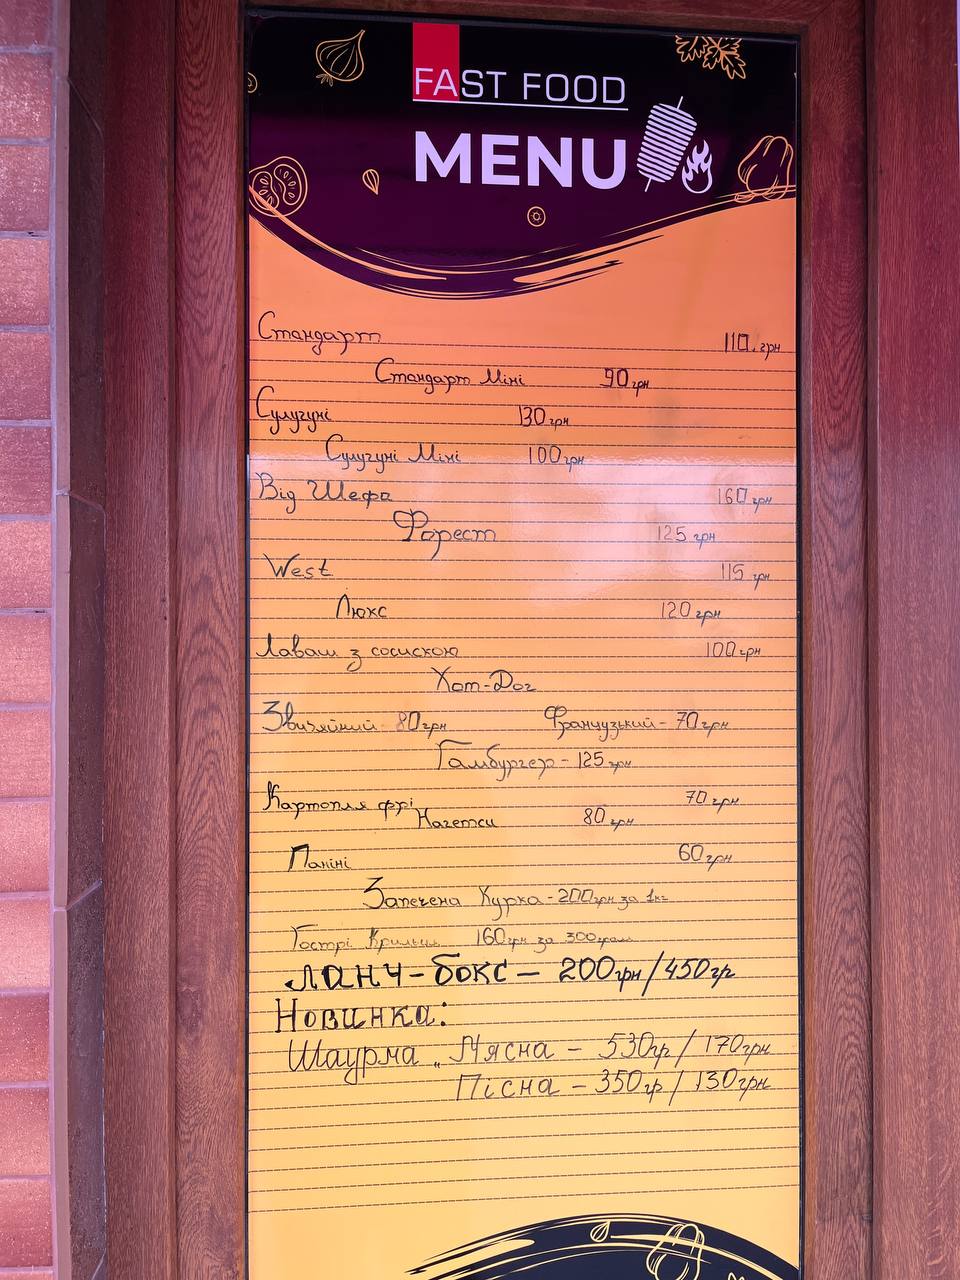 FAST FOOD
MENU
Стандарт 110.грн
Стандарт Міні 90грн
Сулугуні 130грн
Сулугуні Міні 100грн
Від Шефа 160грн
Форест 125 грн
West 115 грн
Люкс 120грн
Лаваш з сосискою 100грн
Хот-Дог
Звичайний 80грн Французький - 70грн
Гамбургер - 125 грн
Картопля фрі 70грн
Нагетси 80грн
Паніні 60грн
Запечена Курка - 200грн за 1кг
Гострі Крильця 160грн за 300грам
ЛАНЧ - БОКС - 200грн/450гр
Новинка:
Шаурма „М'ясна - 530гр/170грн
Пісна - 350гр/130грн